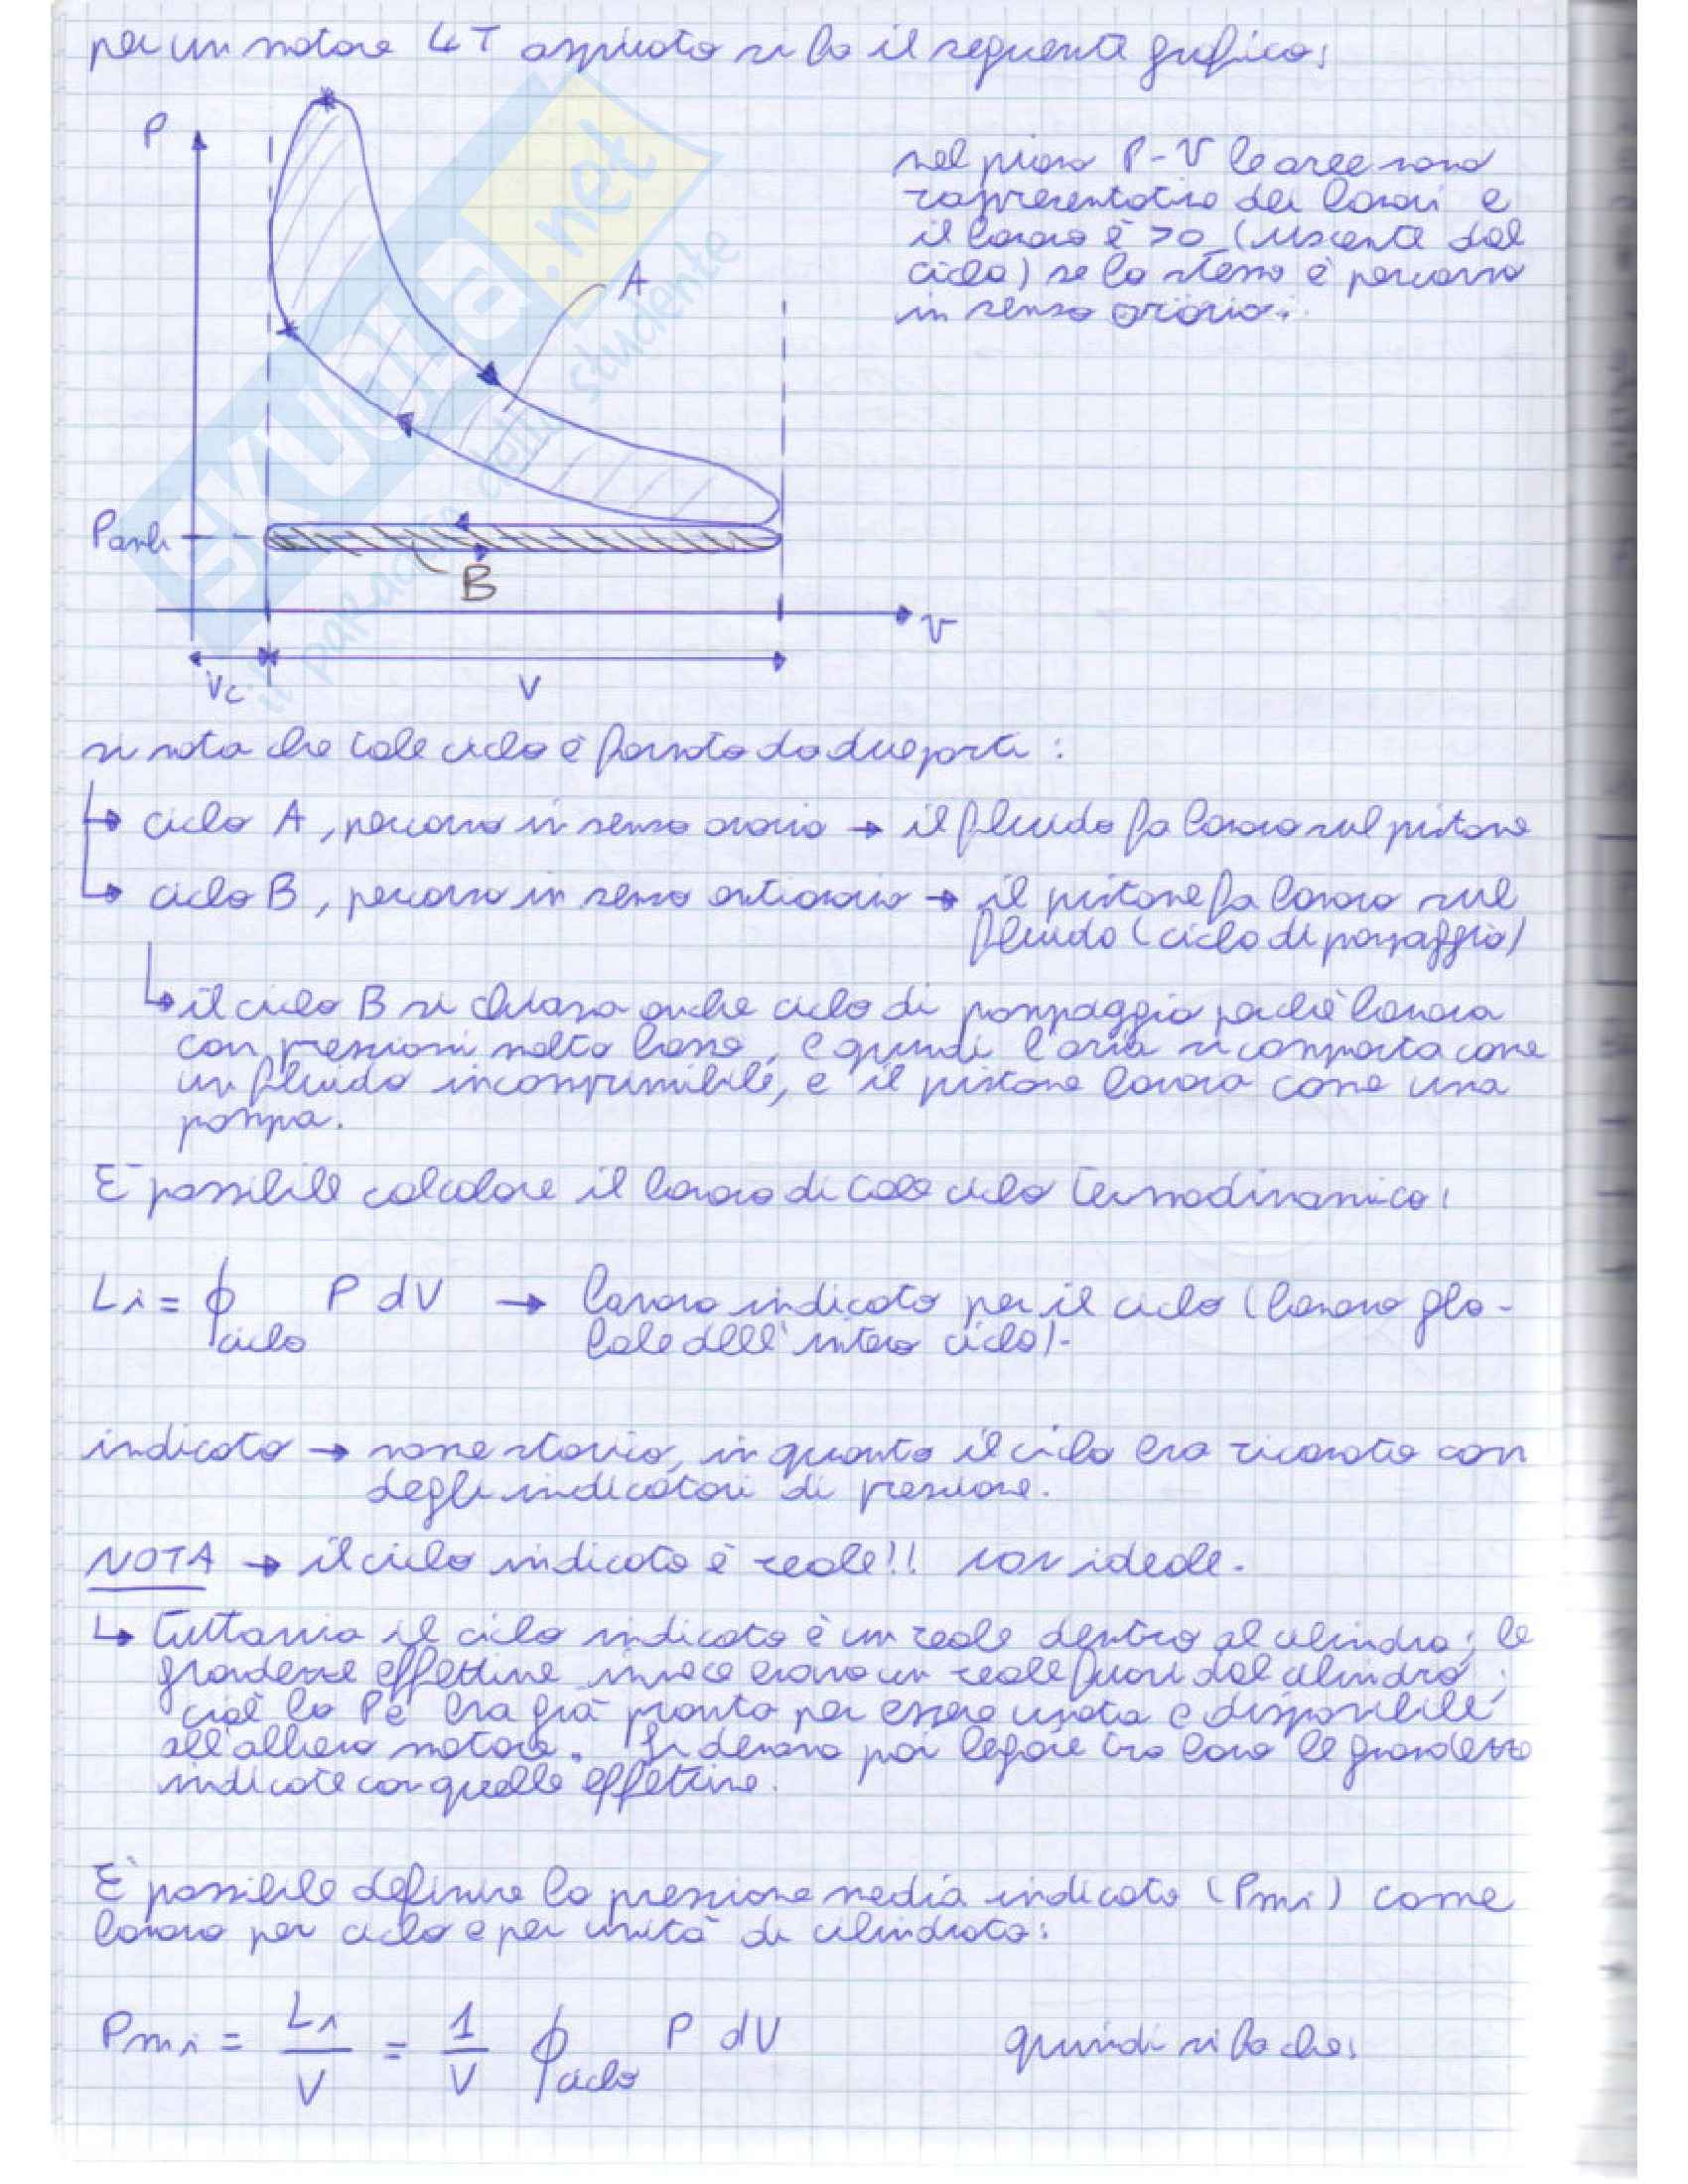 per un motore 4T aspirato si ha il seguente grafico:
P
nel piano P-V le aree sono
rappresentative dei lavori e
il lavoro è >0 (uscente dal
ciclo) se lo stesso è percorso
in senso orario.
A
Pamb
B
v
Vc
V
SKUOLA.net
il paradiso dello studente
si nota che tale ciclo è formato da due parti:
↳ ciclo A, percorso in senso orario → il fluido fa lavoro sul pistone
↳ ciclo B, percorso in senso antiorario → il pistone fa lavoro sul
fluido (ciclo di pompaggio)
↳ il ciclo B si chiama anche ciclo di pompaggio perchè lavora
con pressioni molto basse, e quindi l'aria si comporta come
un fluido incomprimibile, e il pistone lavora come una
pompa.
È possibile calcolare il lavoro di tale ciclo termodinamico:
Li = ∮ciclo P dV → lavoro indicato per il ciclo (lavoro glo-
bale dell'intero ciclo).
indicato → nome storico, in quanto il ciclo era ricavato con
degli indicatori di pressione.
NOTA → il ciclo indicato è reale!! non ideale.
↳ tuttavia il ciclo indicato è un reale dentro al cilindro; le
grandezze effettive invece erano un reale fuori dal cilindro,
cioè la Pe era già pronta per essere usata e disponibile
all'albero motore. Si devono poi legare tra loro le grandezze
indicate con quelle effettive.
È possibile definire la pressione media indicata (Pmi) come
lavoro per ciclo e per unità di cilindrata:
Pmi = Li/V = 1/V ∮ciclo P dV quindi si ha che: